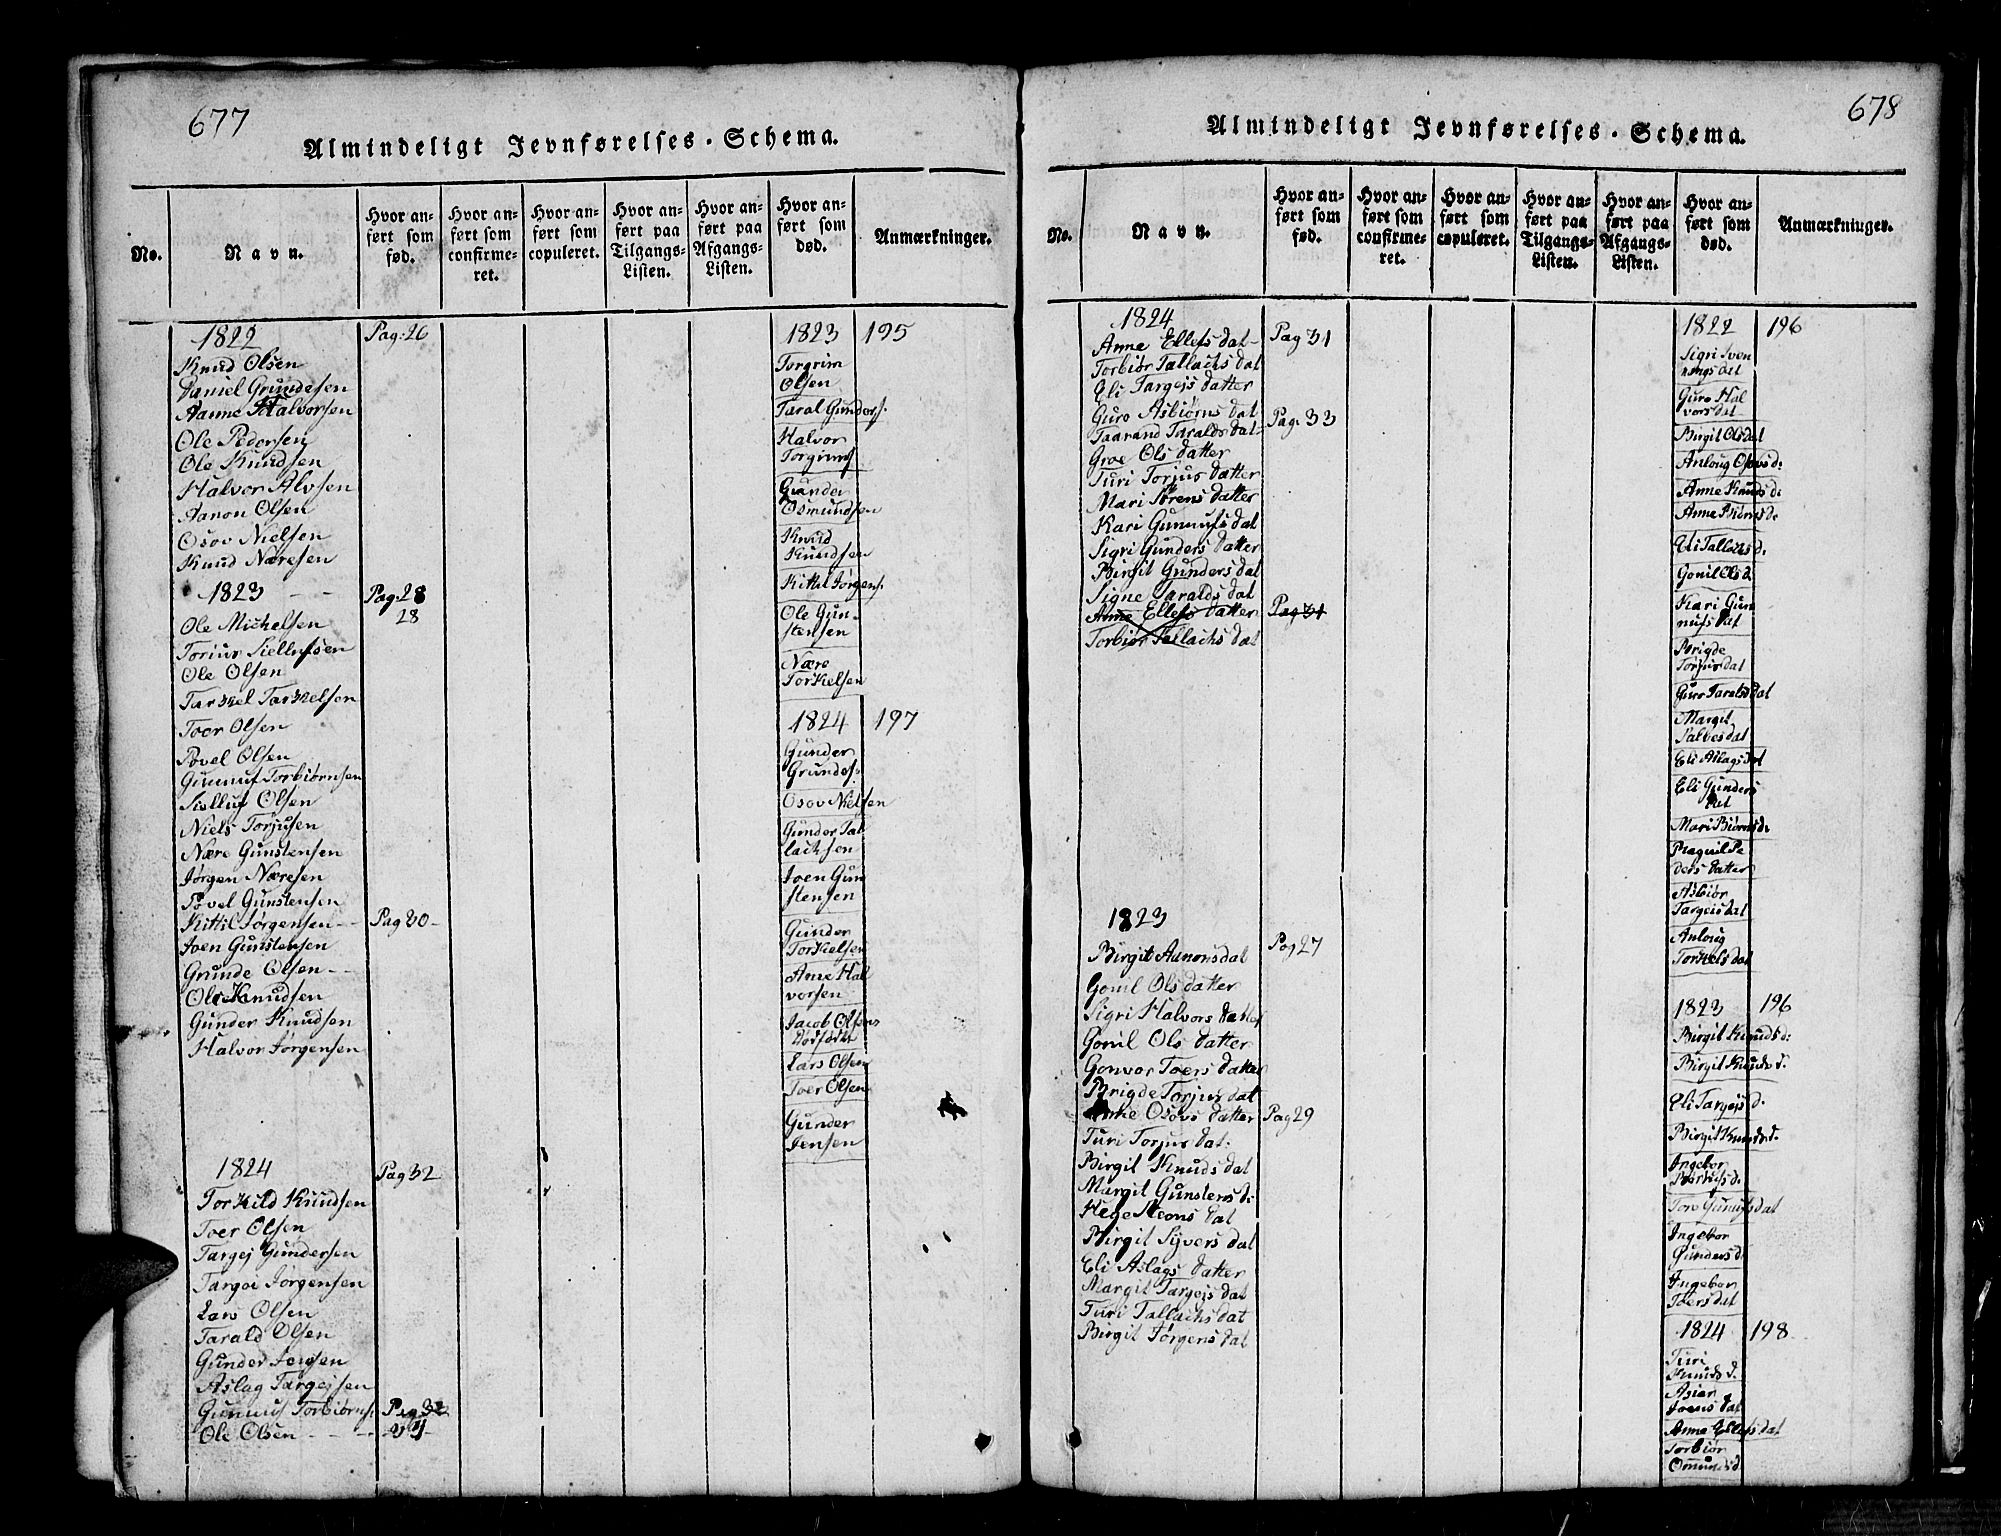 677
Almindeligt Jevnførelses-Schema.
No.
Navn.
Hvor anført som fød.
Hvor anført som confirmeret.
Hvor anført som copuleret.
Hvor anført paa Tilgangs-Listen.
Hvor anført paa Afgangs-Listen.
Hvor anført som død.
Anmærkninger.
1822 Pag: 26
Knud Olsen
Daniel Grundesen
Aanne Halvorsen
Ole Pedersen
Ole Knudsen
Halvor Alvsen
Aanon Olsen
Osov Nielsen
Knud Næresen
1823 Pag: 28
28
Ole Michelsen
Torjus Siellufsen
Ole Olsen
Tarkel Tarkelsen
Toer Olsen
Povel Olsen
Gunnuf Torbiørnsen
Siølluf Olsen
Niels Torjusen
Nære Gunstensen
Jørgen Næresen
Povel Gunstensen
Kittil Jørgensen Pag 30
Joen Gunstensen
Grunde Olsen
Ole Knudsen
Gunder Knudsen
Halvor Jørgensen
1824 Pag 32
Torkild Knudsen
Toer Olsen
Targej Gundersen
Targei Jørgensen
Lars Olsen
Tarald Olsen
Gunder Jensen
Aslag Targejsen
Gunnuf Torbiørns: Pag 32
Ole Olsen
1823 195
Torgrim
Olsen
Taral Gunders.
Halvor
Torgrims
Gunder
Osmundsen
Knud
Knudsen
Kittel Jørgens.
Ole Gun-
stensen
Nære
Torkelsen
1824 197
Gunder
Grundes.
Osov Nielsen
Gunder Tal
lachsen
Joen Gun
stensen
Gunder
Torkelsen
Arne Hal
vorsen
Jacob Olsens
dødfødte
Lars Olsen
Toer Olsen
Gunder
Jensen
678
Almindeligt Jevnførelses-Schema.
No.
Navn.
Hvor anført som fød.
Hvor anført som confirmeret.
Hvor anført som copuleret.
Hvor anført paa Tilgangs-Listen.
Hvor anført paa Afgangs-Listen.
Hvor anført som død.
Anmærkninger.
1824
Anne Ellefs dat- Pag 31
Torbiør Tallachs dat
Eli Targejs datter
Guro Asbiørns dat
Taarand Taralds dat- Pag. 33
Groe Ols datter
Turi Torjus datter
Mari Sørens datter
Kari Gunnufs dat
Sigri Gunders datter
Birgit Gunders dat
Signe Taralds dat
Anne Ellefs datter Pag 31
Torbiør Tallachs dat
1823
Birgit Aanons dat Pag 27
Gonil Ols datter
Sigri Halvors datter
Gonil Ols datter
Gonvor Toers datter
Brigde Torjus dat
Anne Osovs datter Pag 29
Turi Torjus dat.
Birgit Knuds dat
Margit Gunstens d:
Hege Steons dat
Birgit Syvers dat
Eli Aslags datter
Margit Targejs dat
Turi Tallachs dat
Birgit Jørgens dat
1822 196
Sigri Sven
nungs dat
Guro Hal
vors dat
Birgit Ols dat
Anloug Osovs d:
Anne Knuds d:
Anne Biørns d:
Eli Tallachs d.
Gonil Ols d
Kari Gun
nufs dat
Brigde
Torjus dat
Guro Taralds dat
Margit
Salves dat
Eli Aslags dat
Eli Gunders
dat
Mari Biørns d:
Ragnil Pe
ders datter
Asbiør
Targeis dat
Anloug
Torkels dat
1823 196
Birgit Knuds d:
Birgit Knuds d.
Eli Targejs d.
Birgit Knuds d.
Ingebor
Tore Gunufs dat
Ingebor
Gunders d.
Ingebor
Toers dat
1824 198
Turi
Knuds d.
Joens dat
Anne Ellefs dat
Torbiør
Omunds d